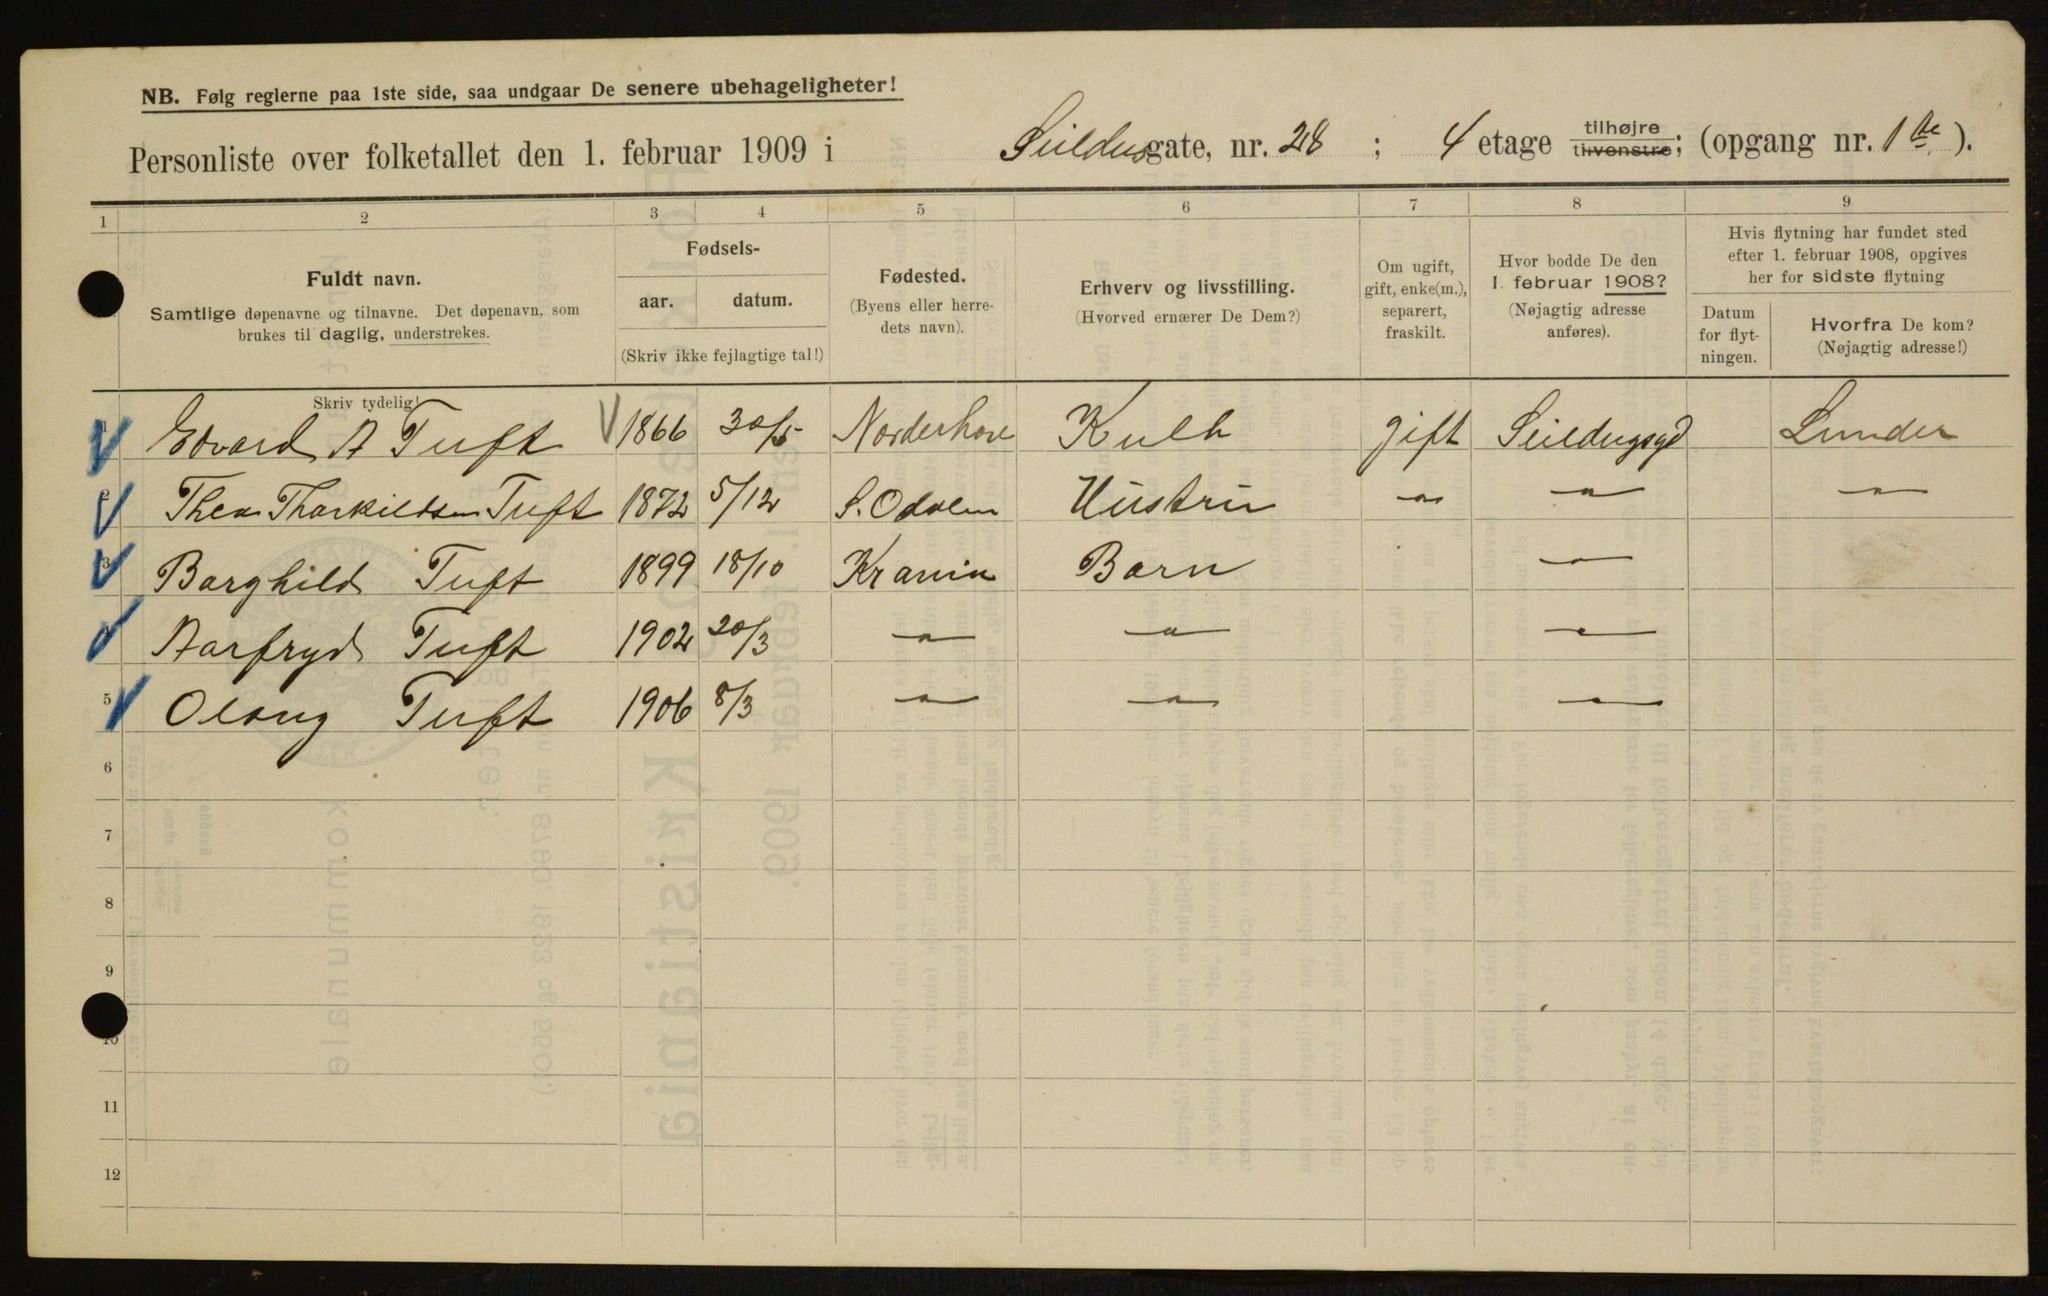 NB. Følg reglerne paa 1ste side, saa undgaar De senere ubehageligheter!
Personliste over folketallet den 1. februar 1909 i Seildusgate, nr. 28 ; 4 etage tilhøjre tilvenstre; (opgang nr. 1ste).
1 2 3 4 5 6 7 8 9
Fuldt navn.
Samtlige døpenavne og tilnavne. Det døpenavn, som
brukes til daglig, understrekes.
Skriv tydelig!
Fødsels-
aar. datum.
(Skriv ikke fejlagtige tal!)
Fødested.
(Byens eller herre-
dets navn).
Erhverv og livsstilling.
(Hvorved ernærer De Dem?)
Om ugift,
gift, enke(m.),
separert,
fraskilt.
Hvor bodde De den
1. februar 1908?
(Nøjagtig adresse
anføres).
Hvis flytning har fundet sted
efter 1. februar 1908, opgives
her for sidste flytning
Datum
for flyt-
ningen.
Hvorfra De kom?
(Nøjagtig adresse!)
1 Edvard A Tuft 1866 30/5 Norderhove gift Seildugsgd Lunder
2 Thea Thorkildsen Tuft 1872 5/12 S. Odalen Hustru — " — — " — — " —
3 Borghild Tuft 1899 18/10 Krania Barn — " —
4 Aarfryd Tuft 1902 20/3 — " — — " — — " —
5 Olaug Tuft 1906 8/3 — " — — " — — " —
6
7
8
9
10
11
12